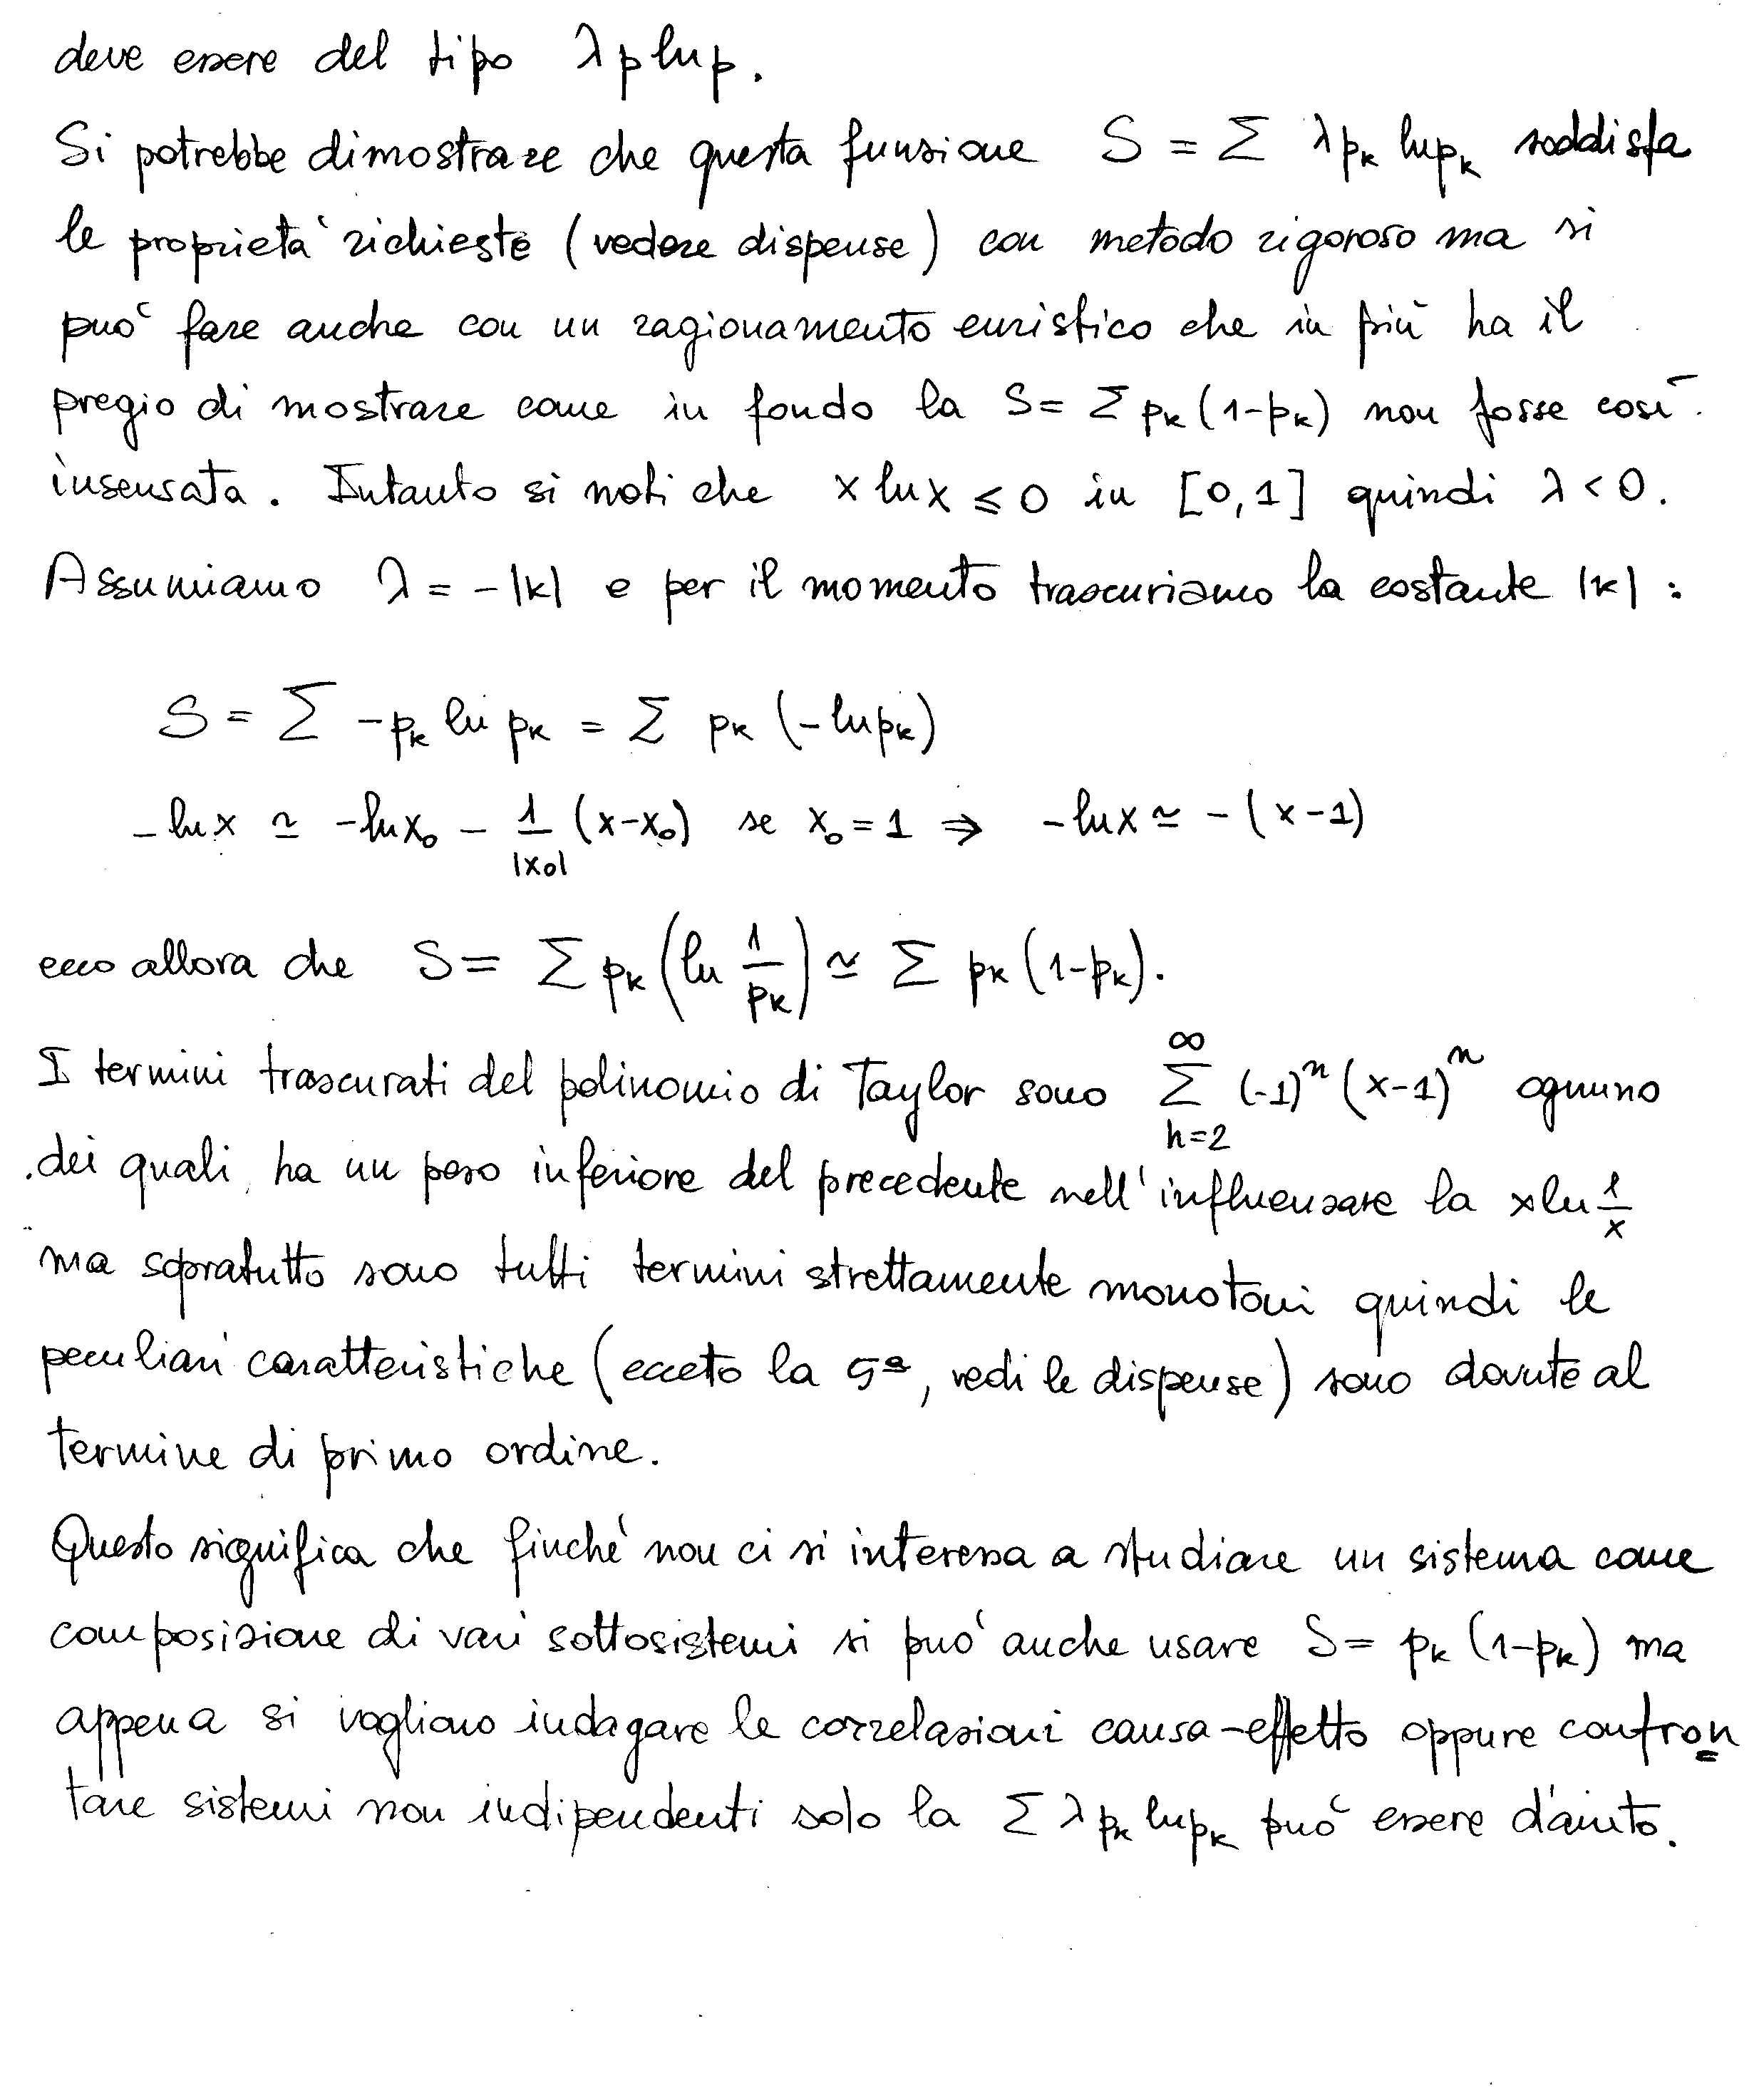 deve essere del tipo λ p ln p.
Si potrebbe dimostrare che questa funzione S = Σ λ pₖ ln pₖ soddisfa
le proprietà richieste (vedere dispense) con metodo rigoroso ma si
può fare anche con un ragionamento euristico che in più ha il
pregio di mostrare come in fondo la S = Σ pₖ (1-pₖ) non fosse così
insensata. Intanto si noti che x ln x ⩽ 0 in [0,1] quindi λ < 0.
Assumiamo λ = -|k| e per il momento trascuriamo la costante |k| :
S = Σ -pₖ ln pₖ = Σ pₖ (-ln pₖ)
-ln x ≃ -ln x₀ - 1/|x₀| (x-x₀) se x₀ = 1 ⇒ -ln x ≃ -(x-1)
ecco allora che S = Σ pₖ (ln 1/pₖ) ≃ Σ pₖ (1-pₖ).
I termini trascurati del polinomio di Taylor sono Σ_{n=2}^{∞} (-1)ⁿ (x-1)ⁿ ognuno
dei quali ha un peso inferiore del precedente nell'influenzare la x ln 1/x
ma sopratutto sono tutti termini strettamente monotoni quindi le
peculiari caratteristiche (ecceto la 5ª, vedi le dispense) sono dovute al
termine di primo ordine.
Questo significa che finché non ci si interessa a studiare un sistema come
composizione di vari sottosistemi si può anche usare S = pₖ (1-pₖ) ma
appena si vogliono indagare le correlazioni causa-effetto oppure confron
tare sistemi non indipendenti solo la Σ λ pₖ ln pₖ può essere d'aiuto.